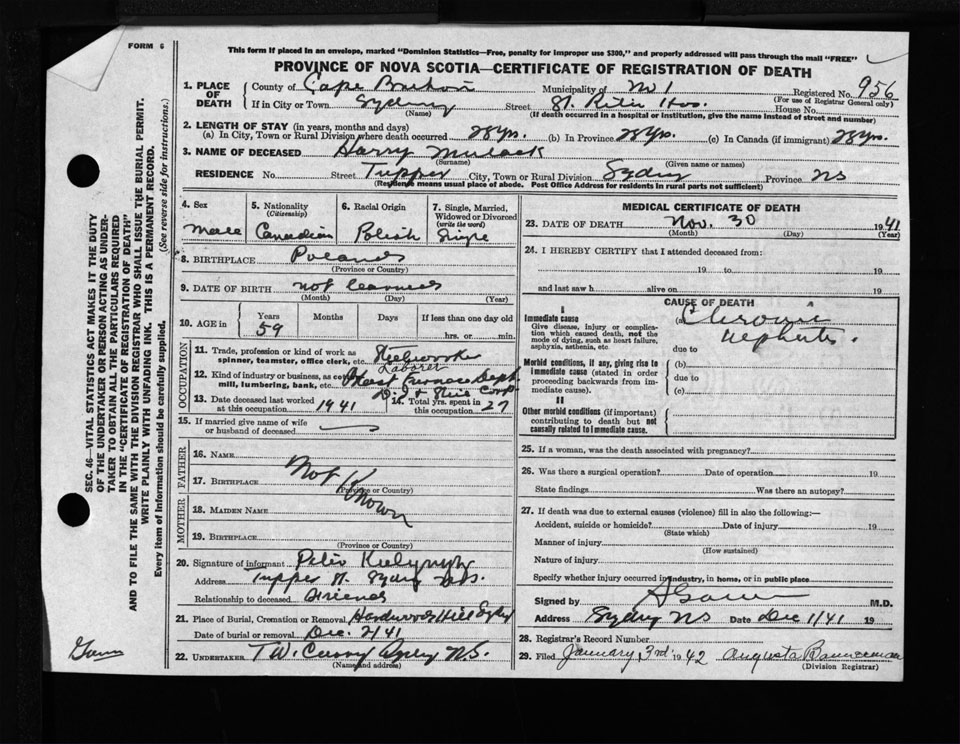 FORM 6
This form if placed in an envelope, marked "Dominion Statistics—Free, penalty for improper use $300," and properly addressed will pass through the mail "FREE"
PROVINCE OF NOVA SCOTIA—CERTIFICATE OF REGISTRATION OF DEATH
1. PLACE OF DEATH
County of Cape Breton Municipality of No 1 Registered No. 956
(For use of Registrar General only)
If in City or Town Sydney Street St. Rita Hos. House No.
(Name) (If death occurred in a hospital or institution, give the name instead of street and number)
2. LENGTH OF STAY (in years, months and days)
(a) In City, Town or Rural Division where death occurred 28 yrs. (b) In Province 28 yrs. (c) In Canada (if immigrant) 28 yrs.
3. NAME OF DECEASED Harry Mulack
(Surname) (Given name or names)
RESIDENCE No. Street Tupper City, Town or Rural Division Sydney Province NS
(Residence means usual place of abode. Post Office Address for residents in rural parts not sufficient)
4. Sex 5. Nationality (Citizenship) 6. Racial Origin 7. Single, Married, Widowed or Divorced (write the word)
Male Canadian Polish Single
8. BIRTHPLACE Poland
(Province or Country)
9. DATE OF BIRTH not learned
(Month) (Day) (Year)
10. AGE in Years Months Days If less than one day
59 hrs. or min.
OCCUPATION
11. Trade, profession or kind of work as spinner, teamster, office clerk, etc. Steelworker
Laborer
12. Kind of industry or business, as cotton mill, lumbering, bank, etc. Blast Furnace Dept
D. I & Steel Corp
13. Date deceased last worked at this occupation 1941
14. Total yrs. spent in this occupation 27
15. If married give name of wife or husband of deceased
FATHER
16. NAME
17. BIRTHPLACE
(Province or Country)
Not Known
MOTHER
18. MAIDEN NAME
19. BIRTHPLACE
(Province or Country)
20. Signature of informant Peter
Address Tupper St. Sydney N.S.
Relationship to deceased Friend
21. Place of Burial, Cremation or Removal Hardwood Hill Sydney
Date of burial or removal Dec. 2/41
22. UNDERTAKER T.W. Curry Sydney N.S.
(Name and address)
MEDICAL CERTIFICATE OF DEATH
23. DATE OF DEATH Nov. 30 1941
(Month) (Day) (Year)
24. I HEREBY CERTIFY that I attended deceased from:
19 to 19
and last saw h alive on 19
CAUSE OF DEATH
I
Immediate cause
Give disease, injury or complication which caused death, not the mode of dying, such as heart failure, asphyxia, asthenia, etc.
(a) Chronic
nephritis.
due to
Morbid conditions, if any, giving rise to immediate cause (stated in order proceeding backwards from immediate cause).
(b)
due to
(c)
II
Other morbid conditions (if important) contributing to death but not causally related to immediate cause.
25. If a woman, was the death associated with pregnancy?
26. Was there a surgical operation? Date of operation 19
State findings Was there an autopsy?
27. If death was due to external causes (violence) fill in also the following:—
Accident, suicide or homicide? Date of injury 19
(State which)
Manner of injury
(How sustained)
Nature of injury
Specify whether injury occurred in industry, in home, or in public place
Signed by M.D.
Address Sydney NS Date Dec 1/41 19
28. Registrar's Record Number
29. Filed January 3rd 1942 Augusta
(Division Registrar)
SEC. 46—VITAL STATISTICS ACT MAKES IT THE DUTY
OF THE UNDERTAKER OR PERSON ACTING AS UNDER-
TAKER TO OBTAIN ALL THE PARTICULARS REQUIRED
IN THE "CERTIFICATE OF REGISTRATION OF DEATH"
AND TO FILE THE SAME WITH THE DIVISION REGISTRAR WHO SHALL ISSUE THE BURIAL PERMIT.
WRITE PLAINLY WITH UNFADING INK. THIS IS A PERMANENT RECORD.
Every item of Information should be carefully supplied. (See reverse side for instructions.)